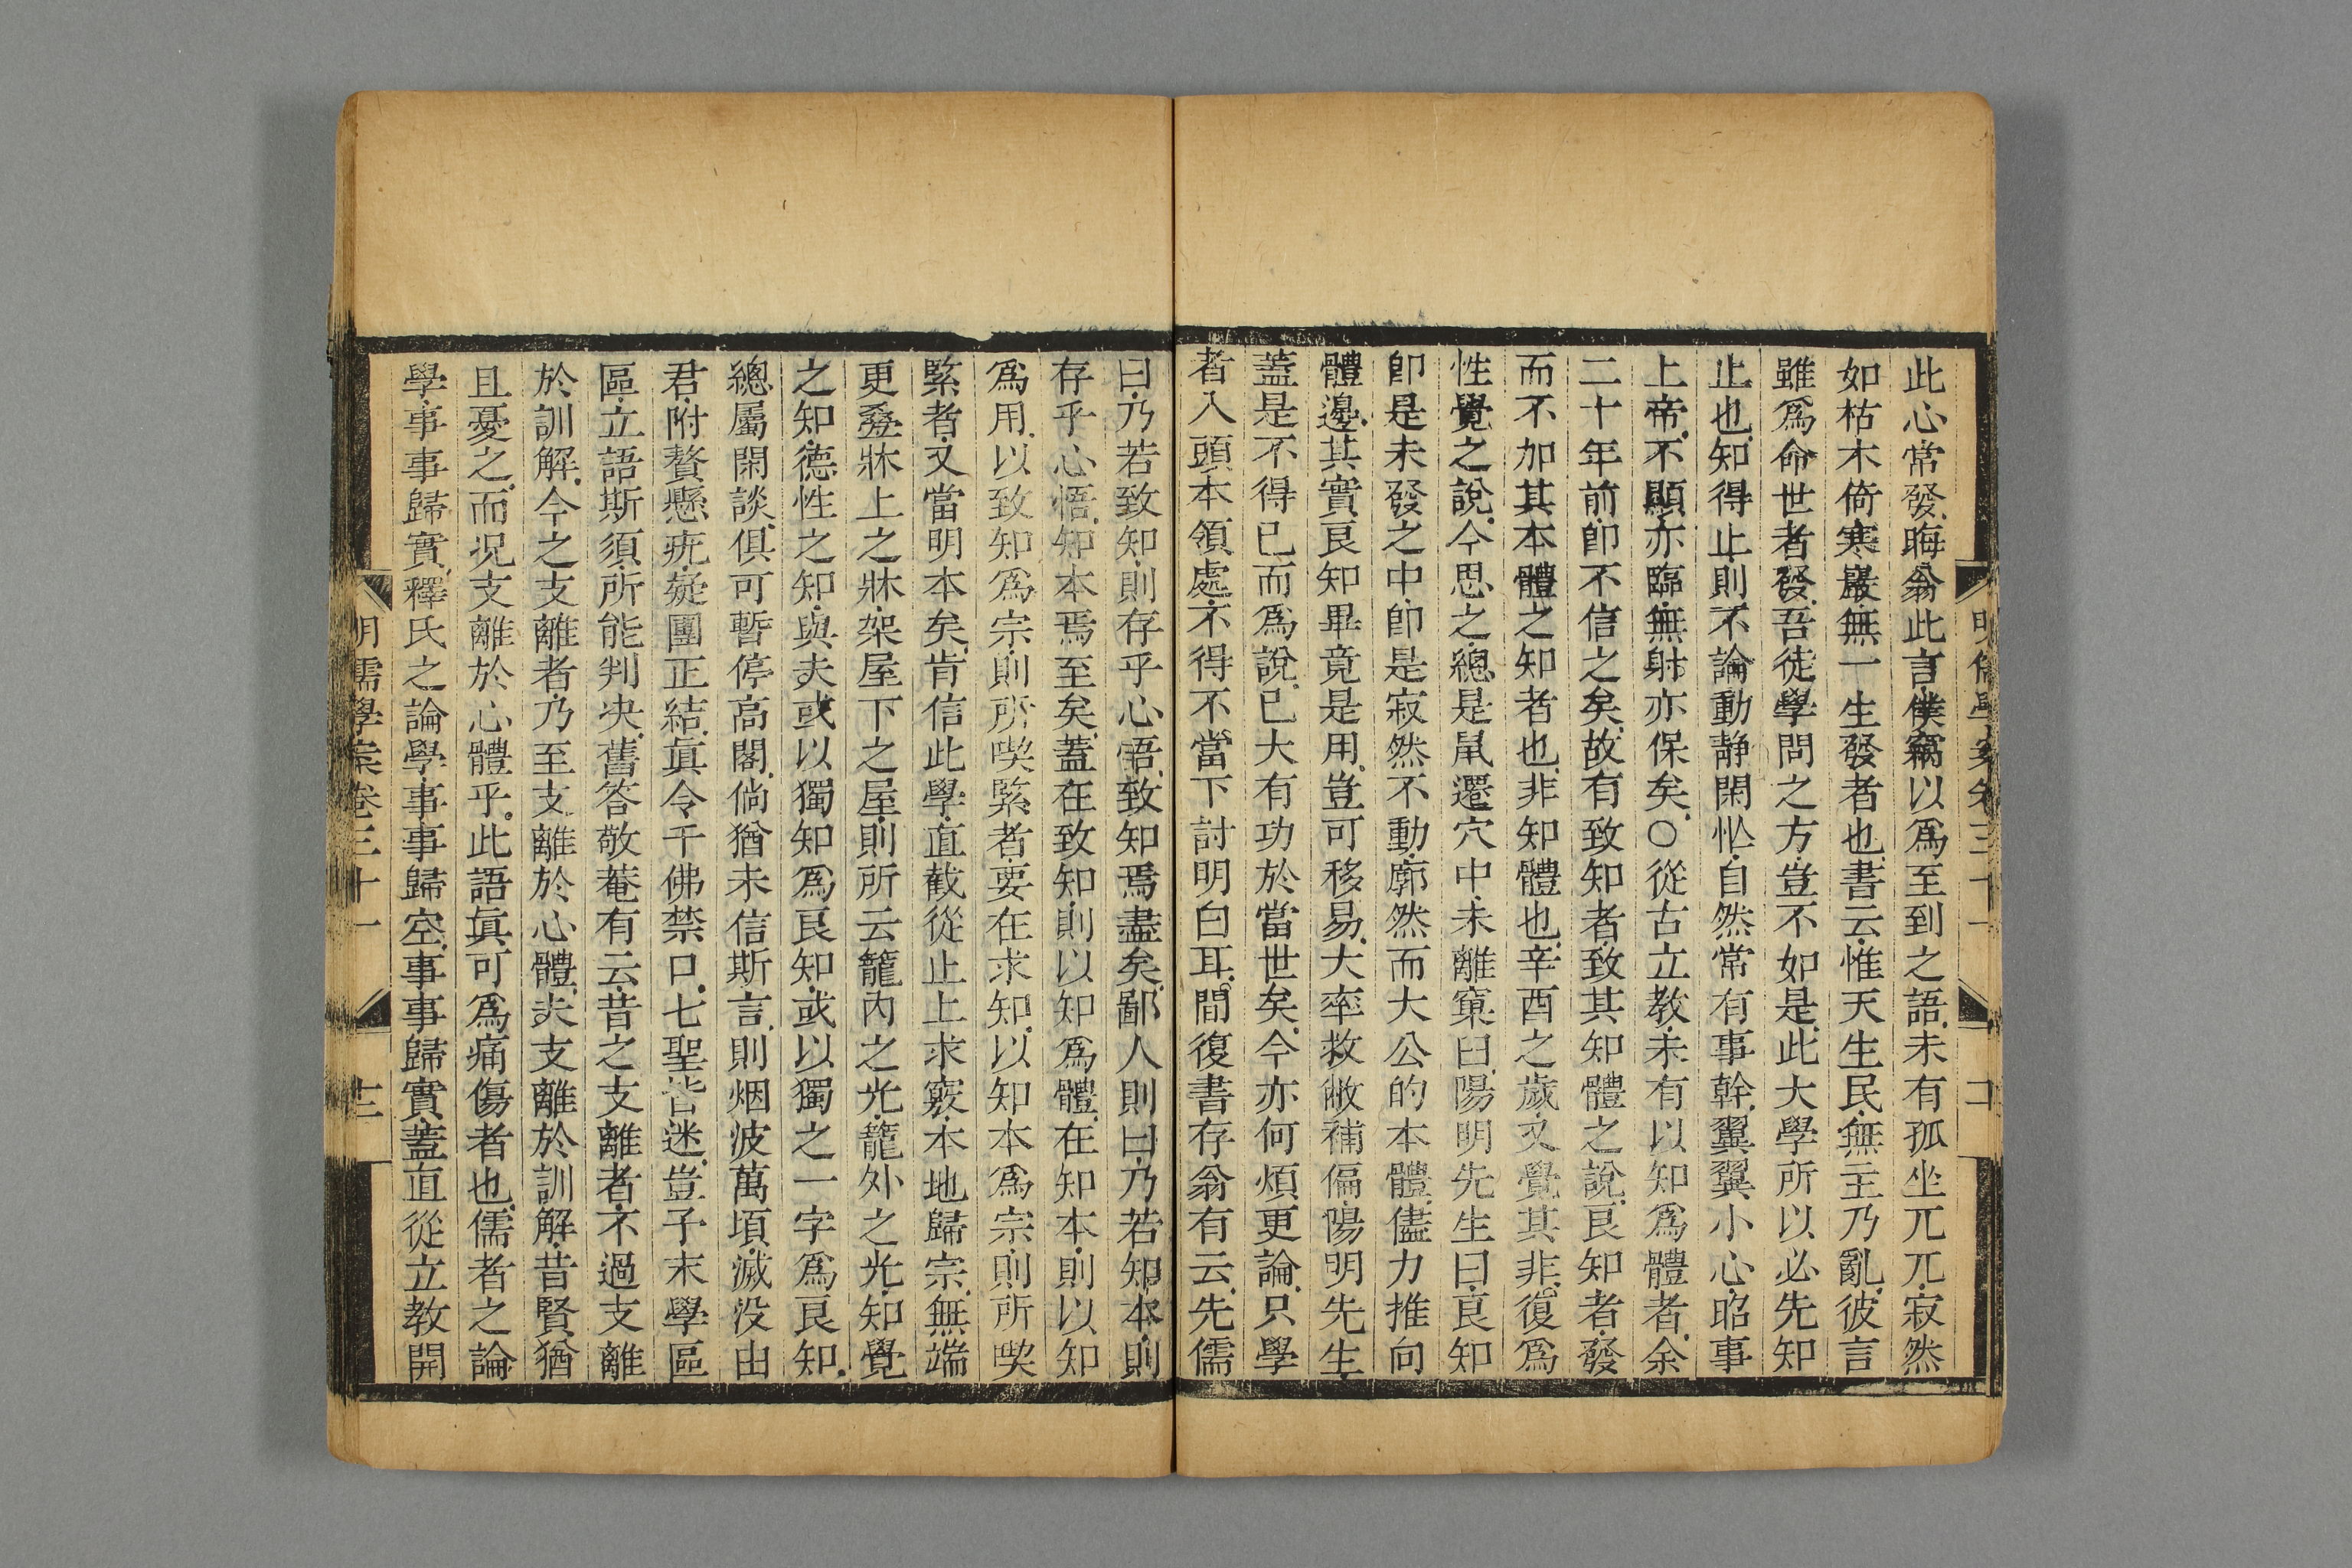 此心常發晦翁此言僕竊以爲至到之語未有孤坐兀兀寂然
如枯木倚寒巖無一生發者也書云惟天生民無主乃亂彼言
雖爲命世者發吾徒學問之方豈不如是此大學所以必先知
止也知得止則不論動靜閑忙自然常有事幹翼翼小心昭事
上帝不顯亦臨無射亦保矣○從古立教未有以知爲體者余
二十年前卽不信之矣故有致知者致其知體之說良知者發
而不加其本體之知者也非知體也辛酉之歲又覺其非復爲
性覺之說今思之總是鼠遷穴中未離窠臼陽明先生曰良知
卽是未發之中卽是寂然不動廓然而大公的本體儘力推向
體邊其實良知畢竟是用豈可移易大率救敝補偏陽明先生
蓋是不得已而爲說已大有功於當世矣今亦何煩更論只學
者入頭本領處不得不當下討明白耳間復書存翁有云先儒
曰乃若致知則存乎心悟致知焉盡矣鄙人則曰乃若知本則
存乎心悟知本焉至矣蓋在致知則以知爲體在知本則以知
爲用以致知爲宗則所喫緊者要在求知以知本爲宗則所喫
緊者又當明本矣肯信此學直截從止上求竅本地歸宗無端
更疊牀上之牀架屋下之屋則所云籠內之光籠外之光知覺
之知德性之知與夫或以獨知爲良知或以獨之一字爲良知
總屬閑談俱可暫停高閣倘猶未信斯言則烟波萬頃滅没由
君附贅懸疣疑團正結眞令千佛禁口七聖皆迷豈子末學區
區立語斯須所能判決舊答敬菴有云昔之支離者不過支離
於訓解今之支離者乃至支離於心體夫支離於訓解昔賢猶
且憂之而況支離於心體乎此語眞可爲痛傷者也儒者之論
學事事歸實釋氏之論學事事歸空事事歸實蓋直從立教開
明儒學案卷三十一
十二